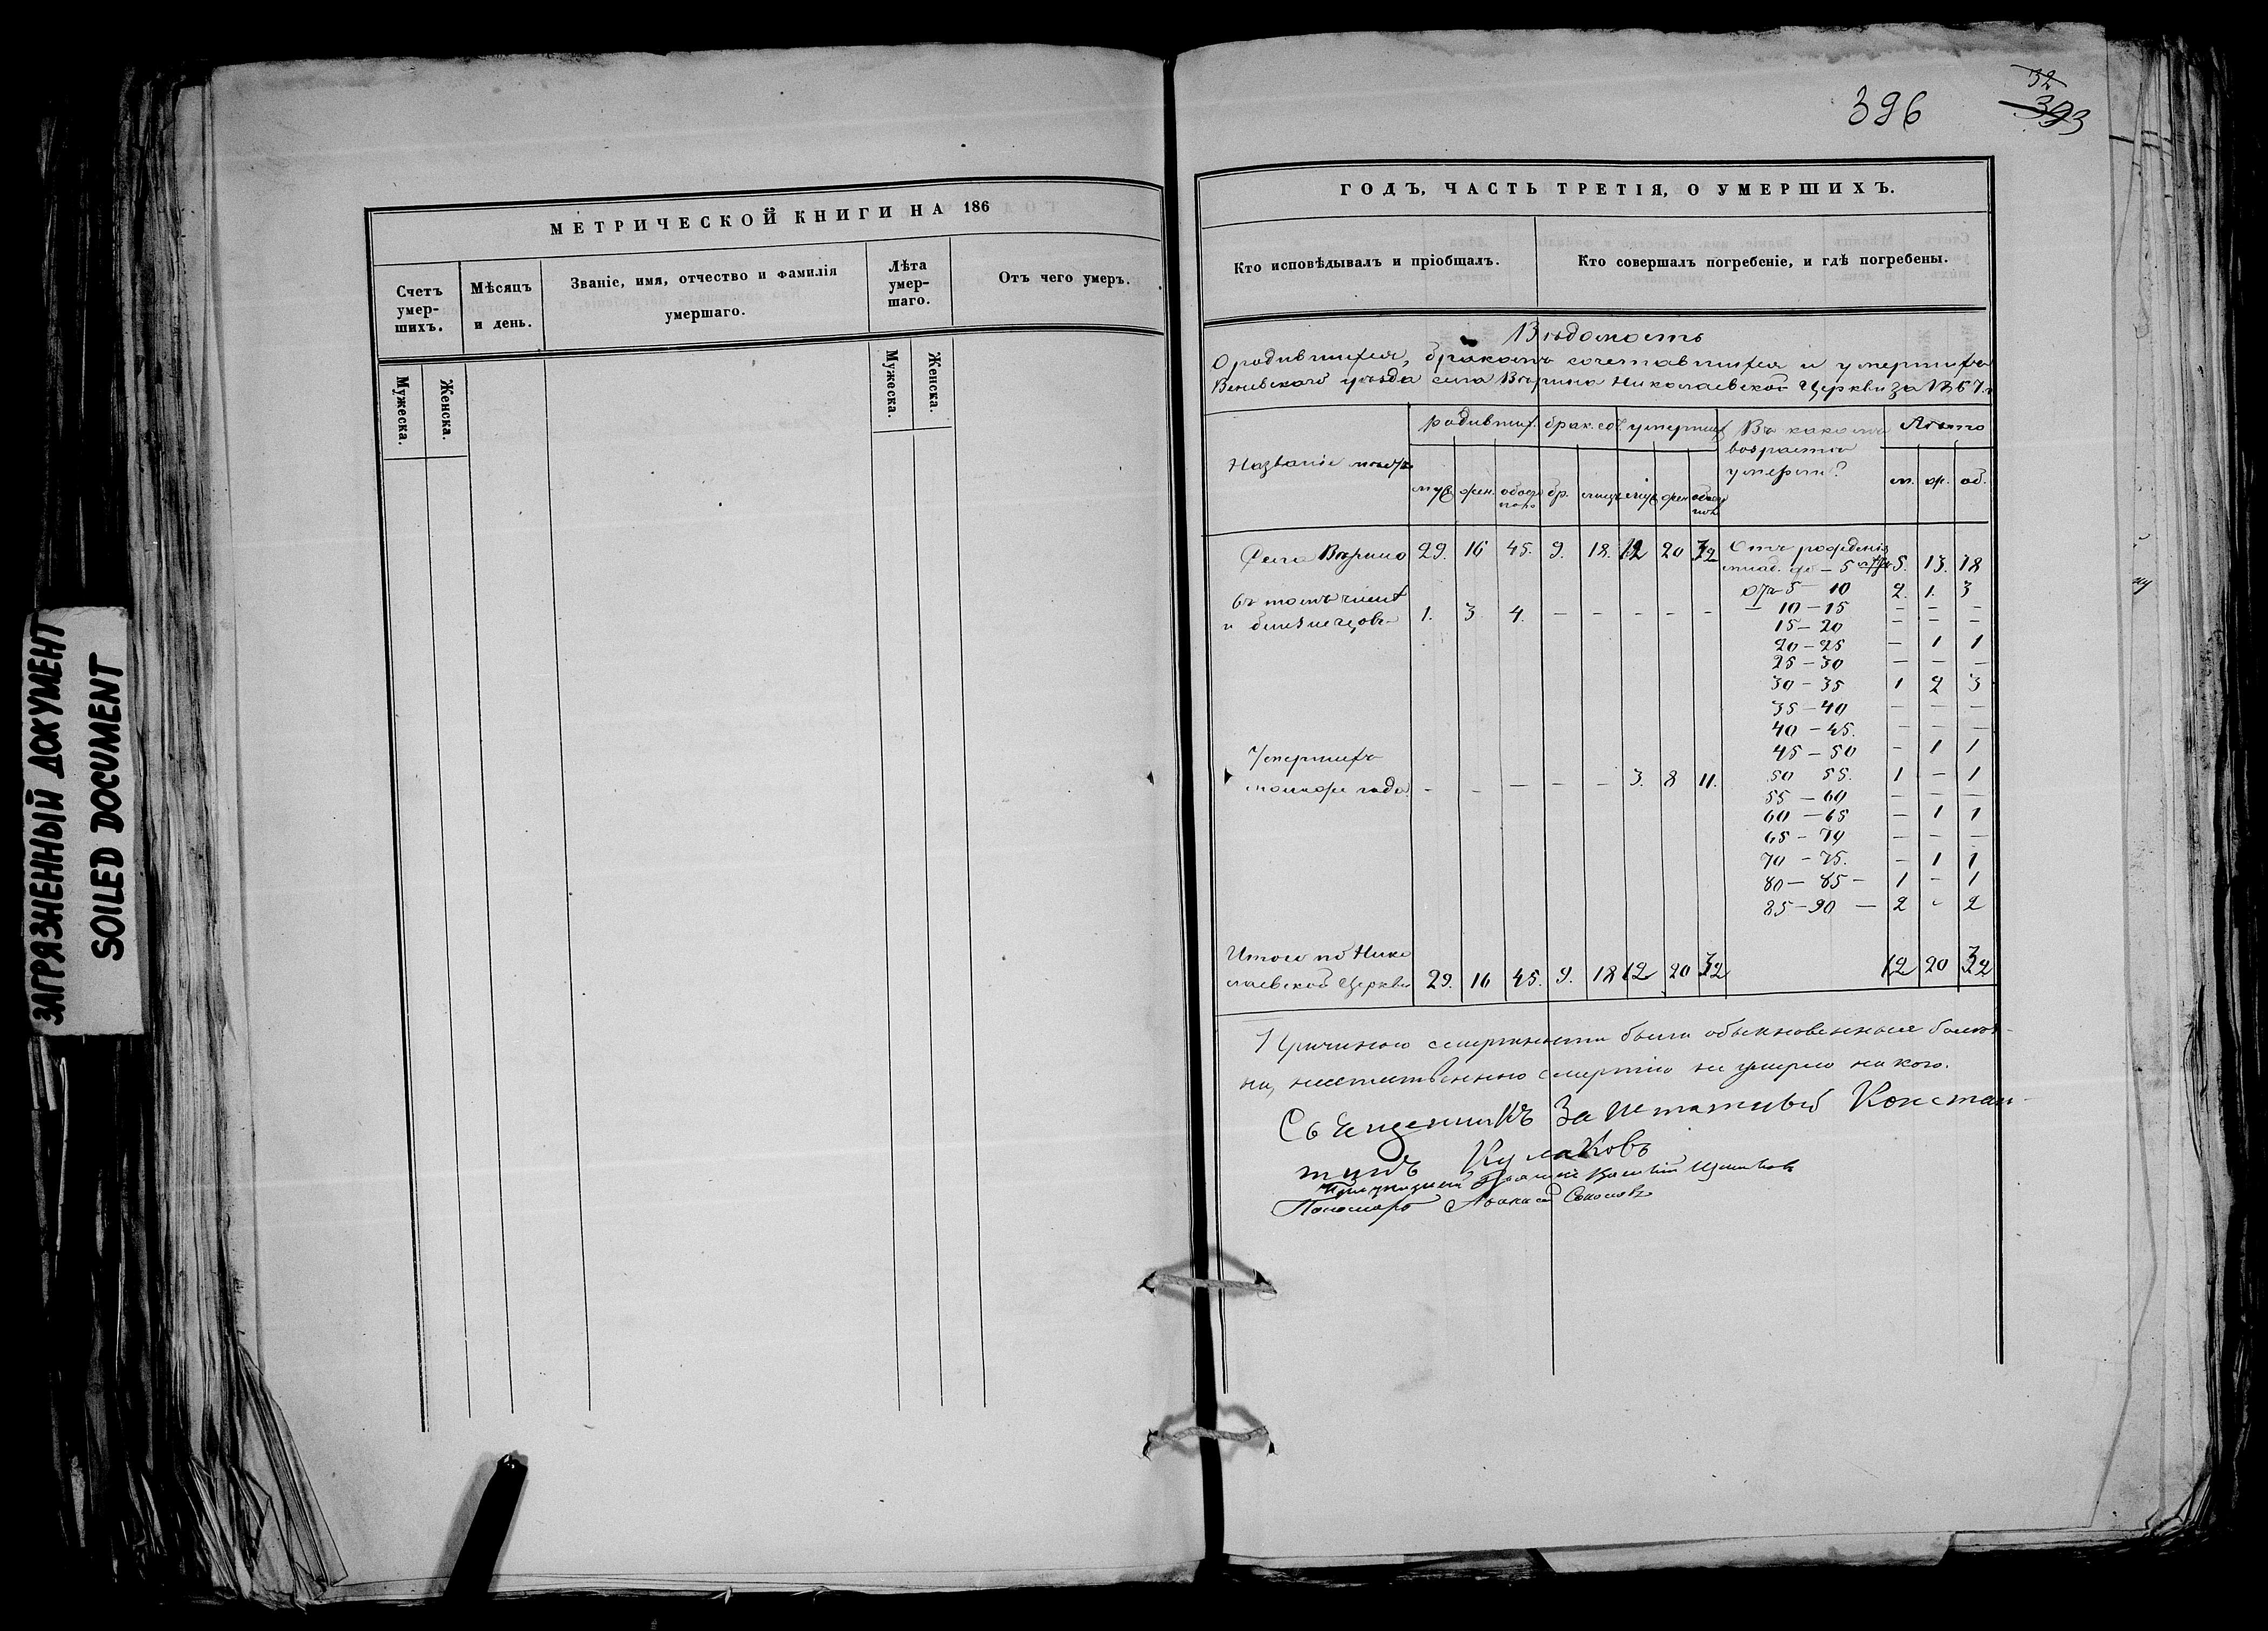 ЗАГРЯЗНЕННЫЙ ДОКУМЕНТ
SOILED DOCUMENT
МЕТРИЧЕСКОЙ КНИГИ НА 186
Счетъ умер-шихъ.
Мѣсяцъ и день.
Званіе, имя, отчество и фамилія умершаго.
Лѣта умер-шаго.
Отъ чего умеръ.
Мужеска.
Женска.
Мужеска.
Женска.
396
32
393
ГОДЪ, ЧАСТЬ ТРЕТІЯ, О УМЕРШИХЪ.
Кто исповѣдывалъ и пріобщалъ.
Кто совершалъ погребеніе, и гдѣ погребены.
Вѣдомость
О родившихся, бракомъ сочетавшихся и умершихъ
Веневскаго уѣзда села Вѣрина Николаевской Церкви за 1867 г.
родивших. брак. соч. умерших Въ какомъ возрастѣ умерли? Лѣта
Названіе
муж. жен. обоег. пола бр. лицъ муж. жен. обоег. пол. м. ж. об.
Села Вѣрино 29. 16 45. 9. 18. 12 20 32 Отъ рожденія млад. до - 5 5. 13. 18
въ томъ числѣ и близнецовъ 1. 3 4. — — — — —
отъ 5 - 10 2. 1. 3
— 10 - 15 — — —
15 - 20 — — —
20 - 25 — 1 1
25 - 30 — — —
30 - 35 1 2 3
35 - 40 — — —
40 - 45. — — —
45 - 50 — 1 1
Умершихъ
тогоже года. — — — — — 3. 8 11. 50 55. 1 — 1
55 - 60 — — —
60 - 65 — 1 1
65 - 70 — — —
70 - 75. — 1 1
80 - 85 - 1 — 1
85 - 90 — 2 - 2
Итого по Нико
лаевской Церкви 29. 16 45. 9. 18 12 20 32 12 20 32
Причиною смертности были обыкновенныя болѣз-
ни, неестественною смертію не умерло никого.
Священникъ Заштатный Констан-
тинъ Кулаковъ
Пономарь Соколовъ